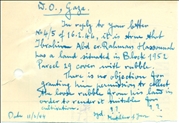 D.O., Gaza.
In reply to your letter
No 4/5 of 16.1.44, it is true that
Ibrahim Abd er-Rahman Hassouneh
has a land situated in Block 1952
Parcel 29 cover with rubble.
There is no objection for
granting him permission to
the rubble from his land in
order to render it suitable for
Date